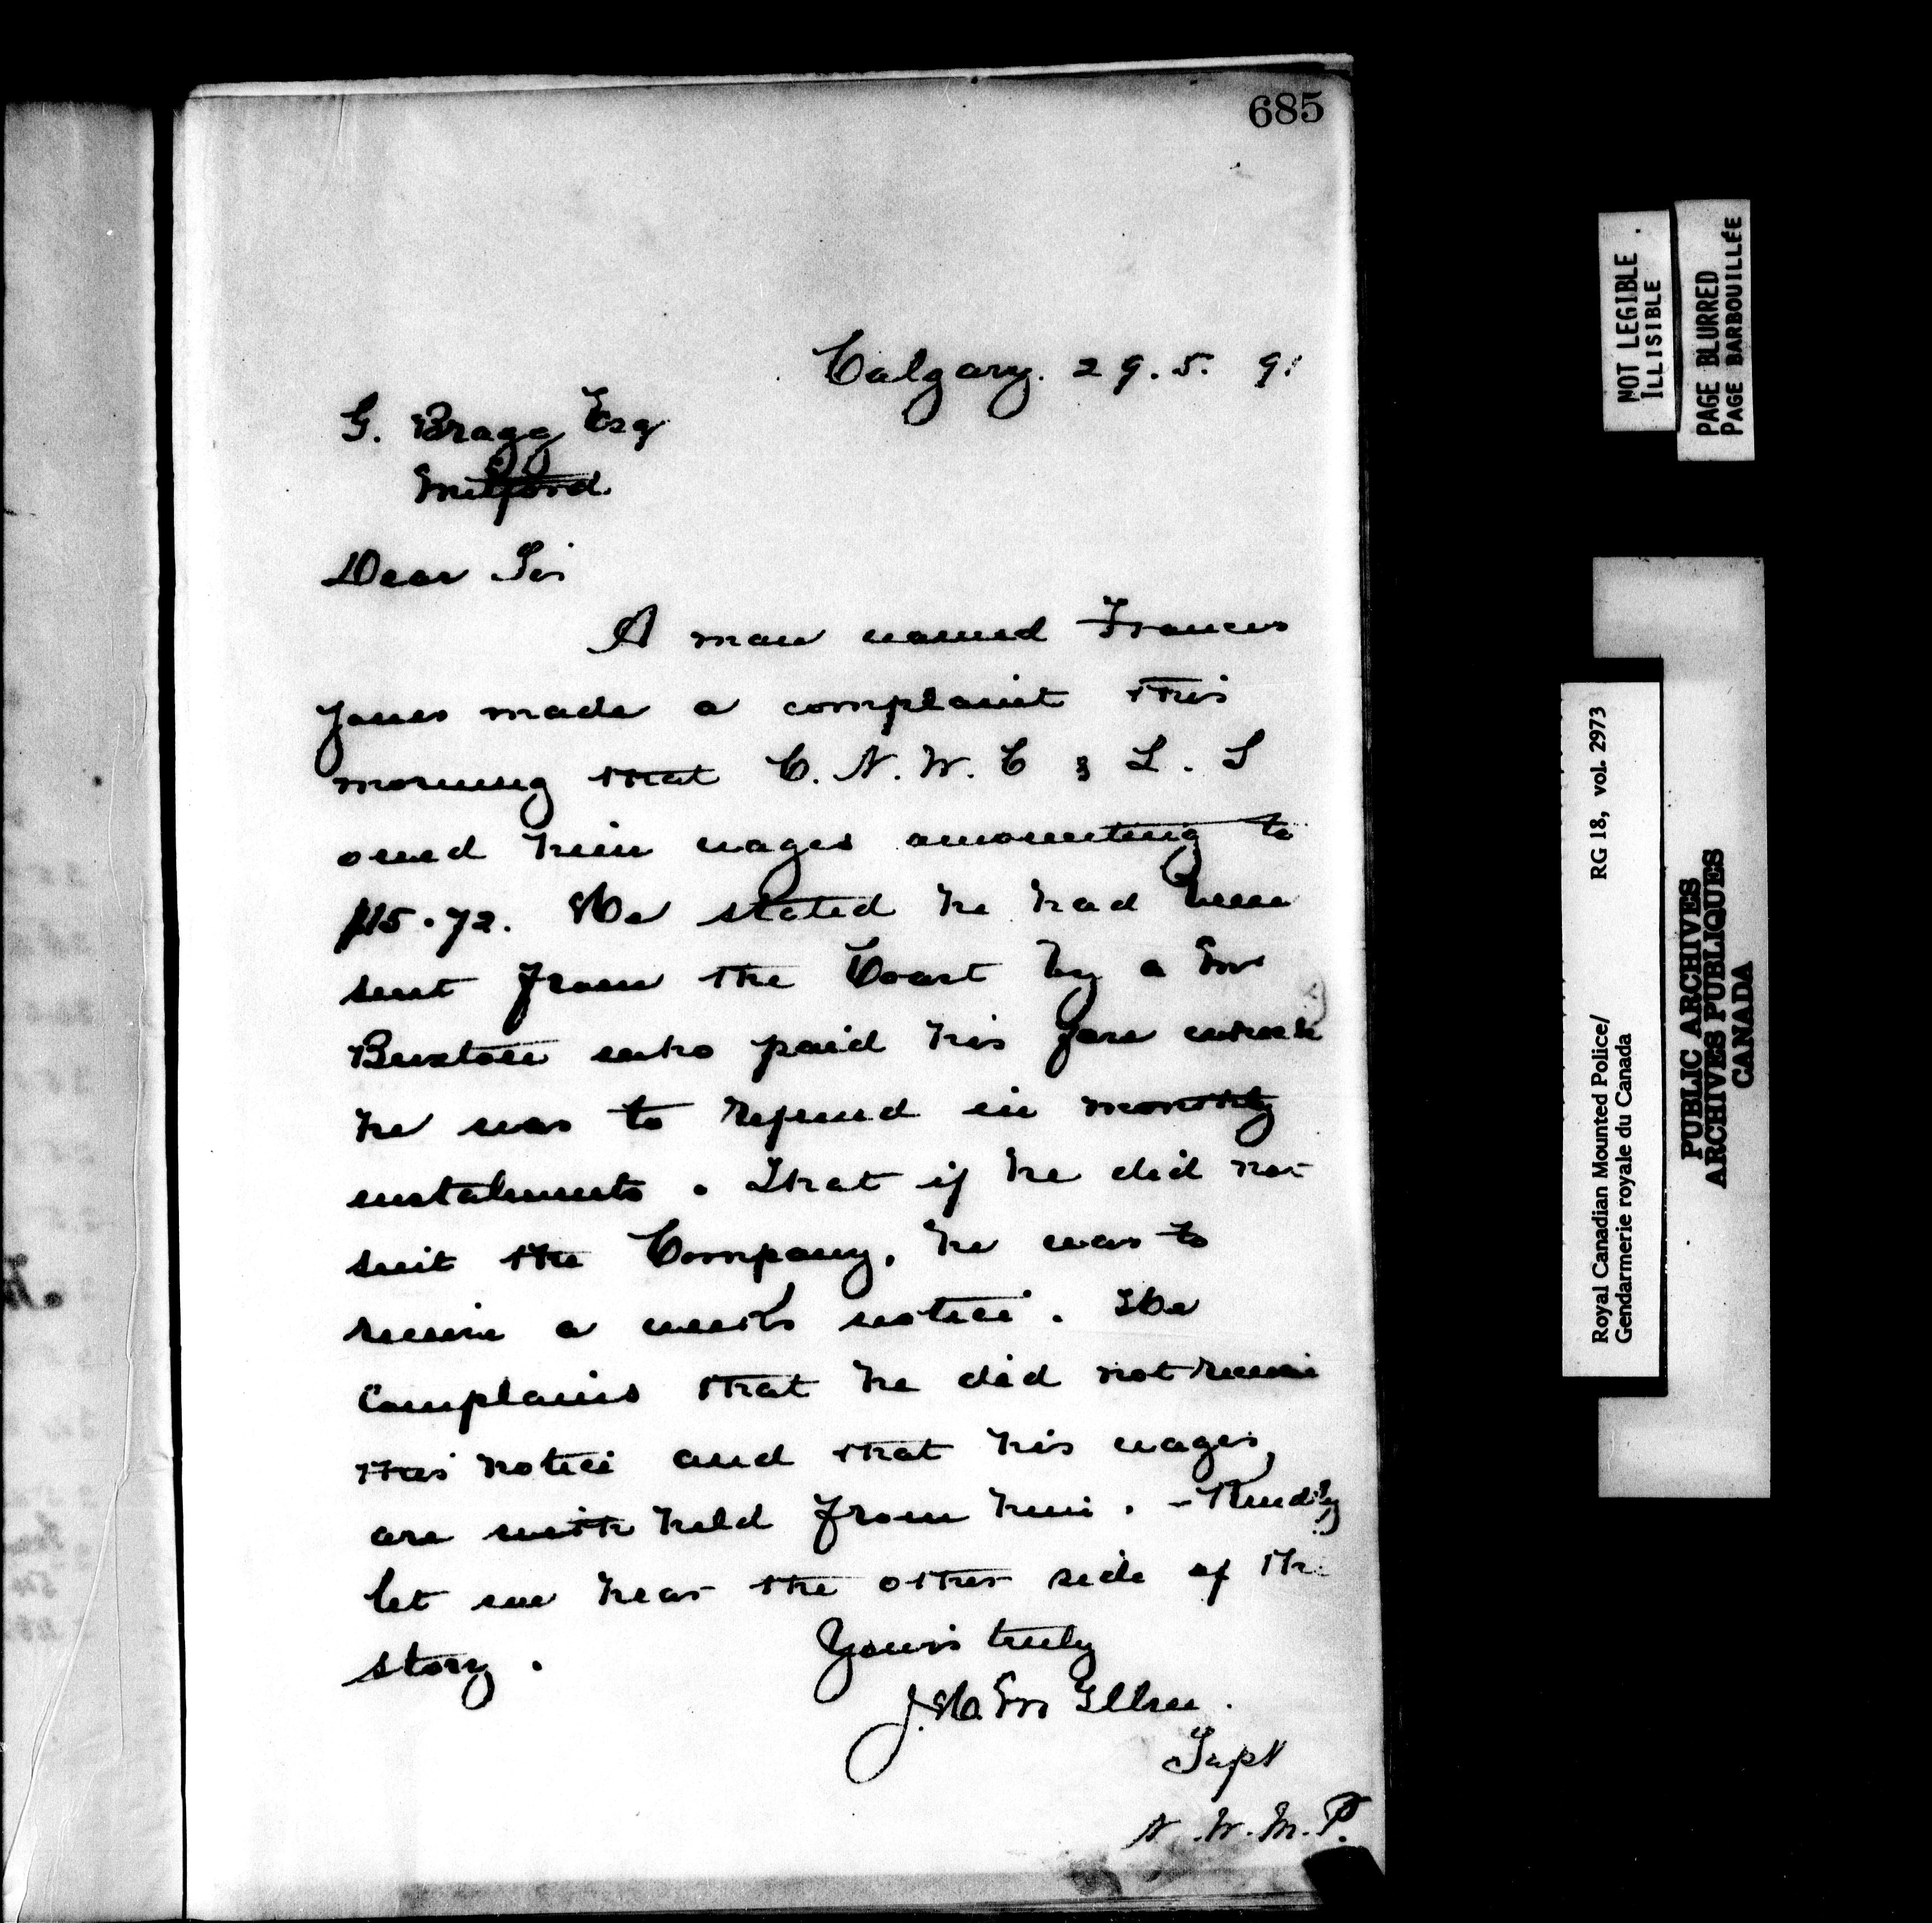 685
Calgary. 29. 5. 91
G. Bragg Esq
Mitford.
Dear Sir
A man named Frances
Jones made a complaint this
morning that C. N. W. C & L. S
owed him wages amounting to
$15.72. He stated he had been
sent from the Coast by a Mr
Buxton who paid his fare which
he was to refund in monthly
instalments. That if he did not
suit the Company, he was to
receive a weeks notice. He
Complains that he did not receive
this notice and that his wages,
are with held from him. - Kindly
let me hear the other side of the
story.
Yours truly
J. H. McIllree.
Supt
N. W. M. P.
NOT LEGIBLE
ILLISIBLE
PAGE BLURRED
PAGE BARBOUILLÉE
Royal Canadian Mounted Police/ RG 18, vol. 2973
Gendarmerie royale du Canada
PUBLIC ARCHIVES
ARCHIVES PUBLIQUES
CANADA